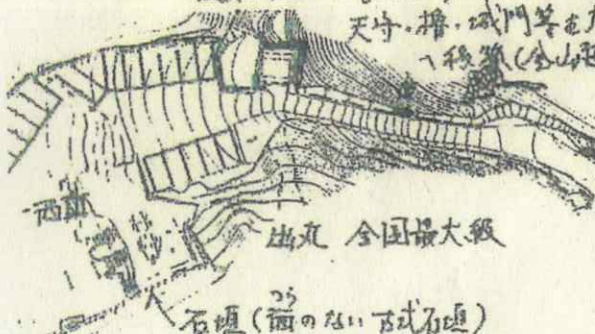 天守・櫓・城門等を
へ移築(金山
西面
出丸 全国最大級
石垣(面のない古式石垣)
つら